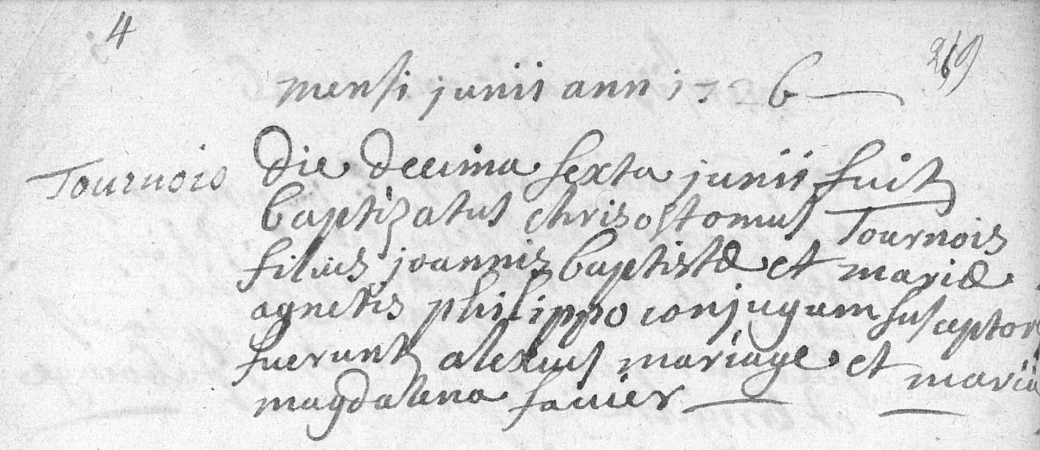 4
269
mensi junii ann 1726
Tournois
die decima sexta junii fuit
baptizatus chrisostomus Tournois
filius joannis baptistæ et mariæ
agnetis philippo conjugum susceptor
fuerunt alexius mariage et maria
magdalena favier